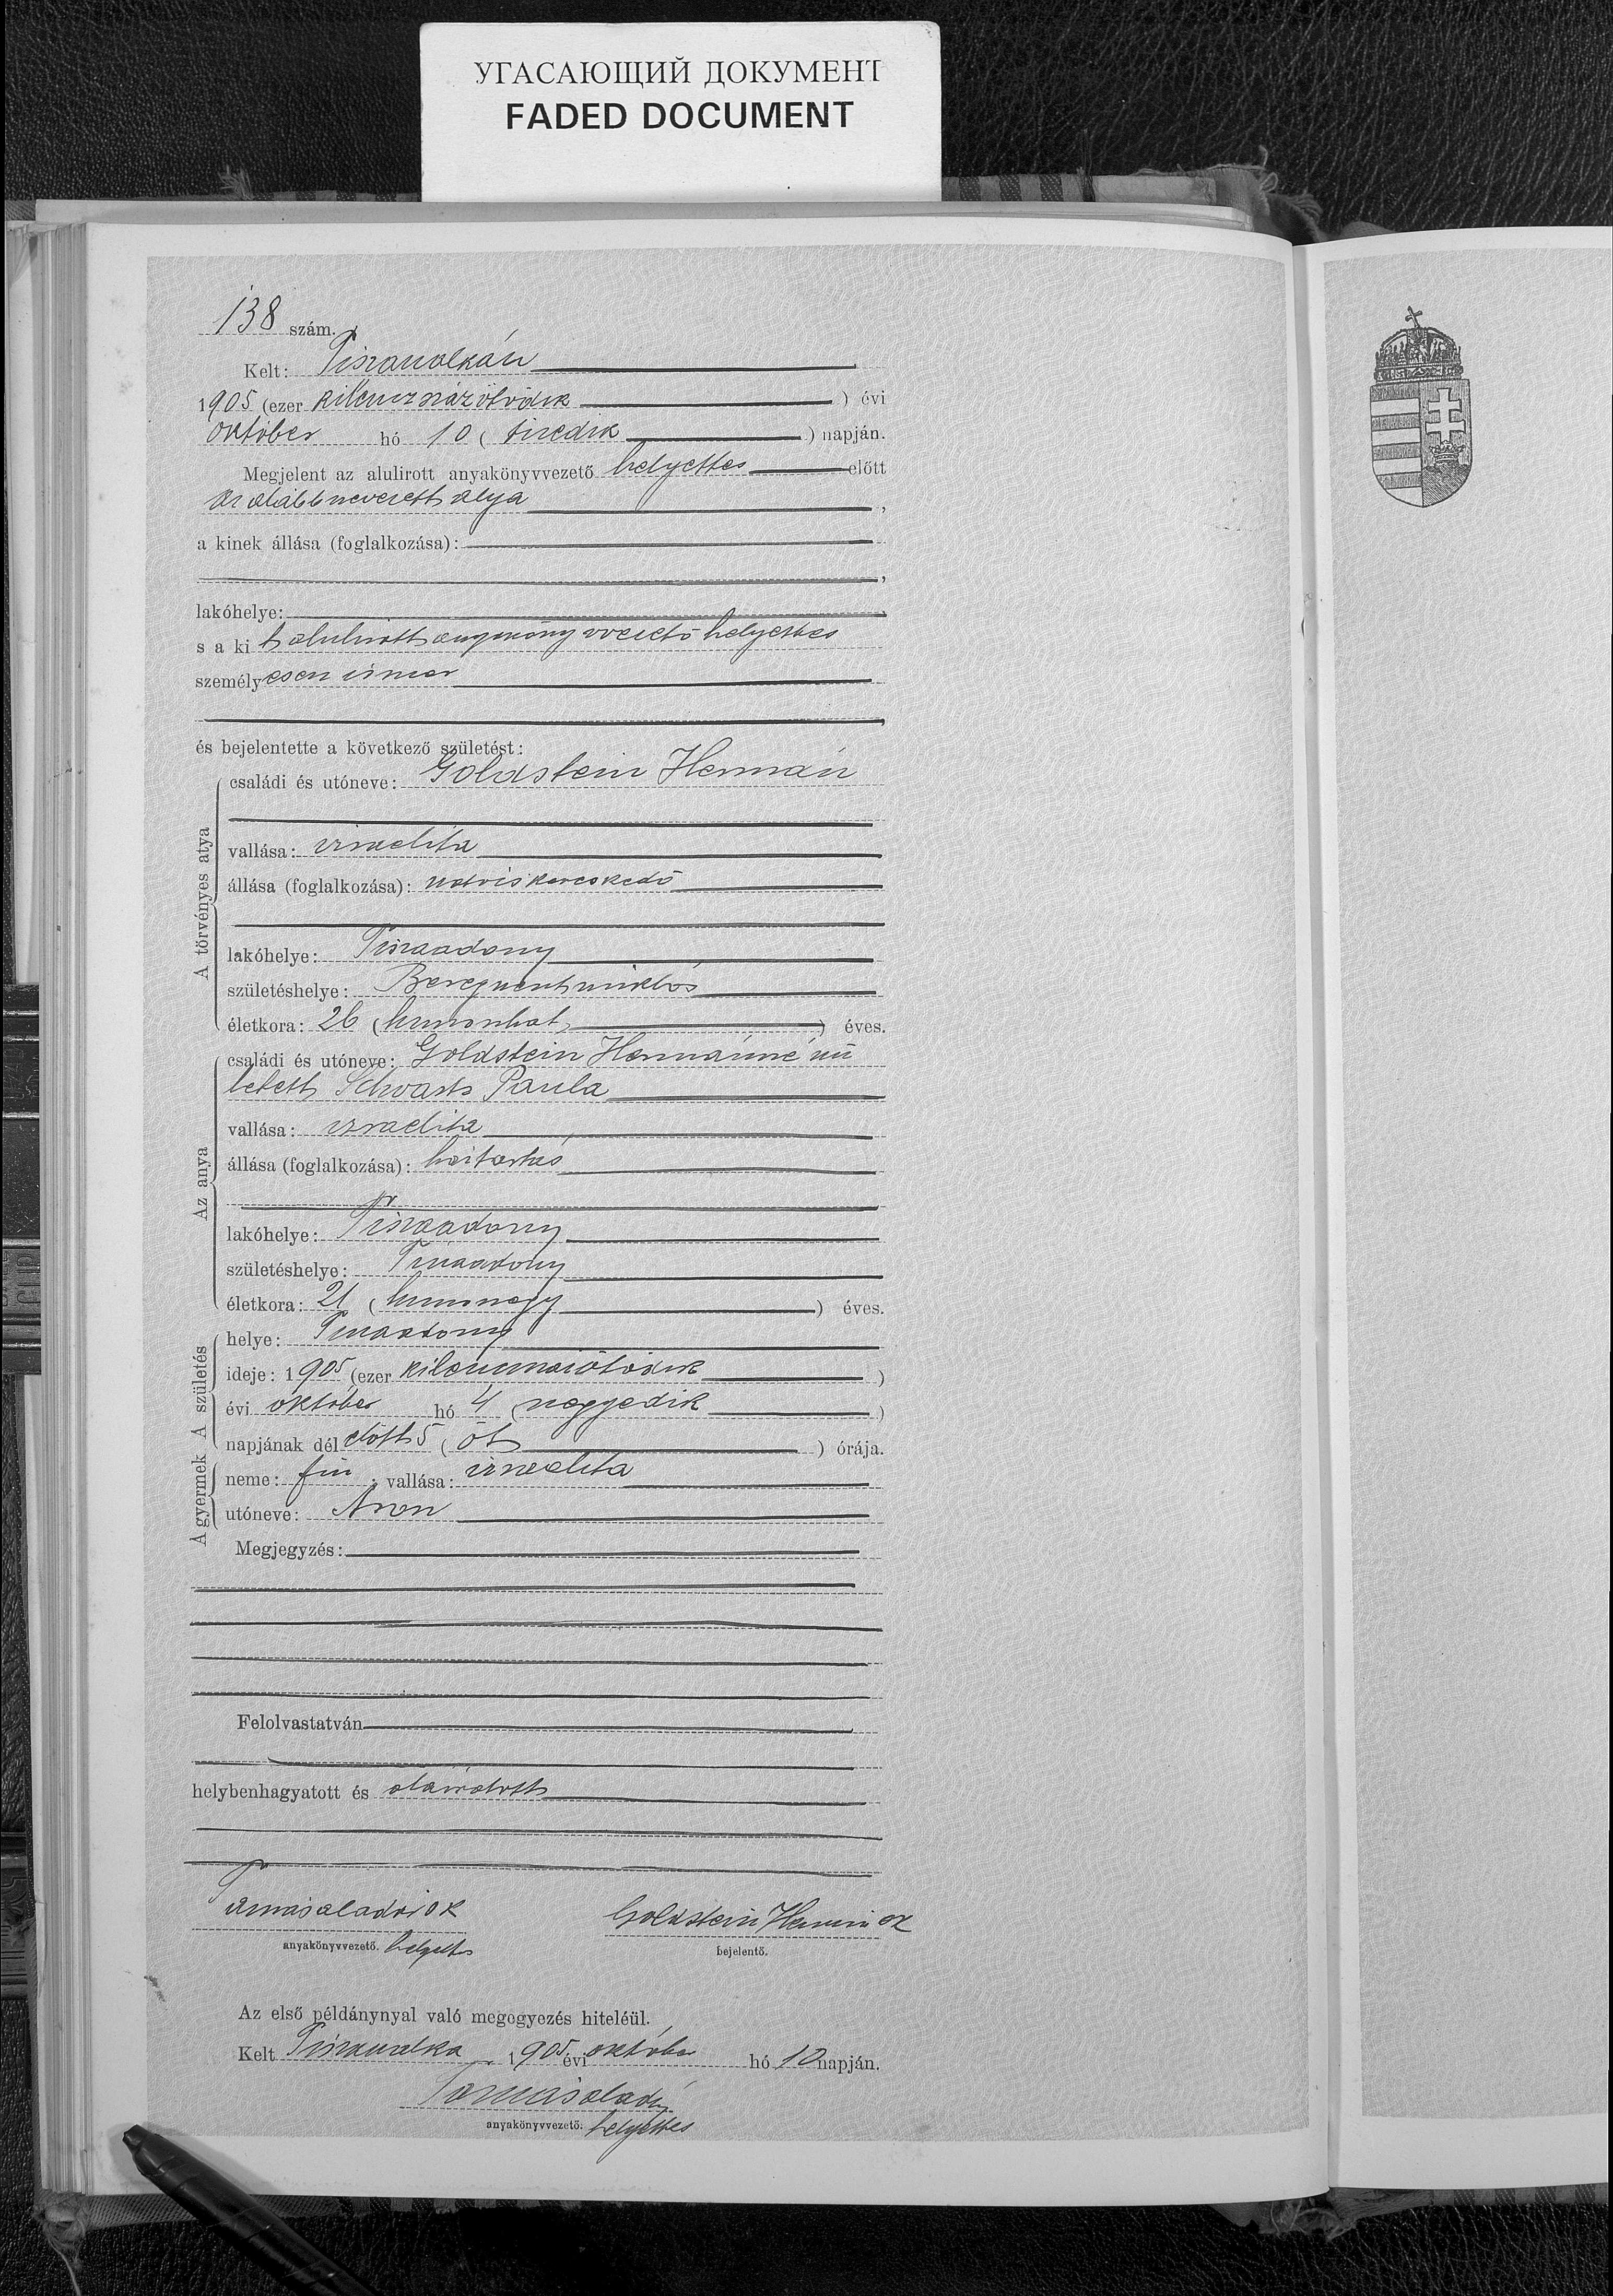 УГАСАЮЩИЙ ДОКУМЕНТ
FADED DOCUMENT
138 szám.
Kelt: Tiszavalkán
1905 (ezer kilencszázötödik ) évi
október hó 10 ( tizedik ) napján.
Megjelent az alulirott anyakönyvvezető helyettes előtt
az alább nevezett atya ,
a kinek állása (foglalkozása):
,
lakóhelye:
s a kit alulirott anyakönyvvezető helyettes
személyesen ismer
,
és bejelentette a következő születést:
A törvényes atya
családi és utóneve: Goldstein Hermán
vallása: izraelita
állása (foglalkozása): kereskedő
lakóhelye: Tiszaadony
születéshelye: Beregszentmiklós
életkora: 26 (huszonhat ) éves.
Az anya
családi és utóneve: Goldstein Hermánné szü
letett Schvarts Paula
vallása: izraelita
állása (foglalkozása): háztartás
lakóhelye: Tiszaadony
születéshelye: Tiszaadony
életkora: 21 (huszonegy ) éves.
A születés
helye: Tiszaadony
ideje: 1905 (ezer kilencszázötödik )
évi október hó 4 (negyedik )
napjának délelőtt 5 (öt ) órája.
A gyermek
neme: fiu ; vallása: izraelita
utóneve: Áron
Megjegyzés:
Felolvastatván
helybenhagyatott és aláiratott
anyakönyvvezető. helyettes
Goldstein Hermán
bejelentő.
Az első példánynyal való megegyezés hiteléül.
Kelt Tiszavalka 1905 évi október hó 10 napján.
anyakönyvvezető. helyettes